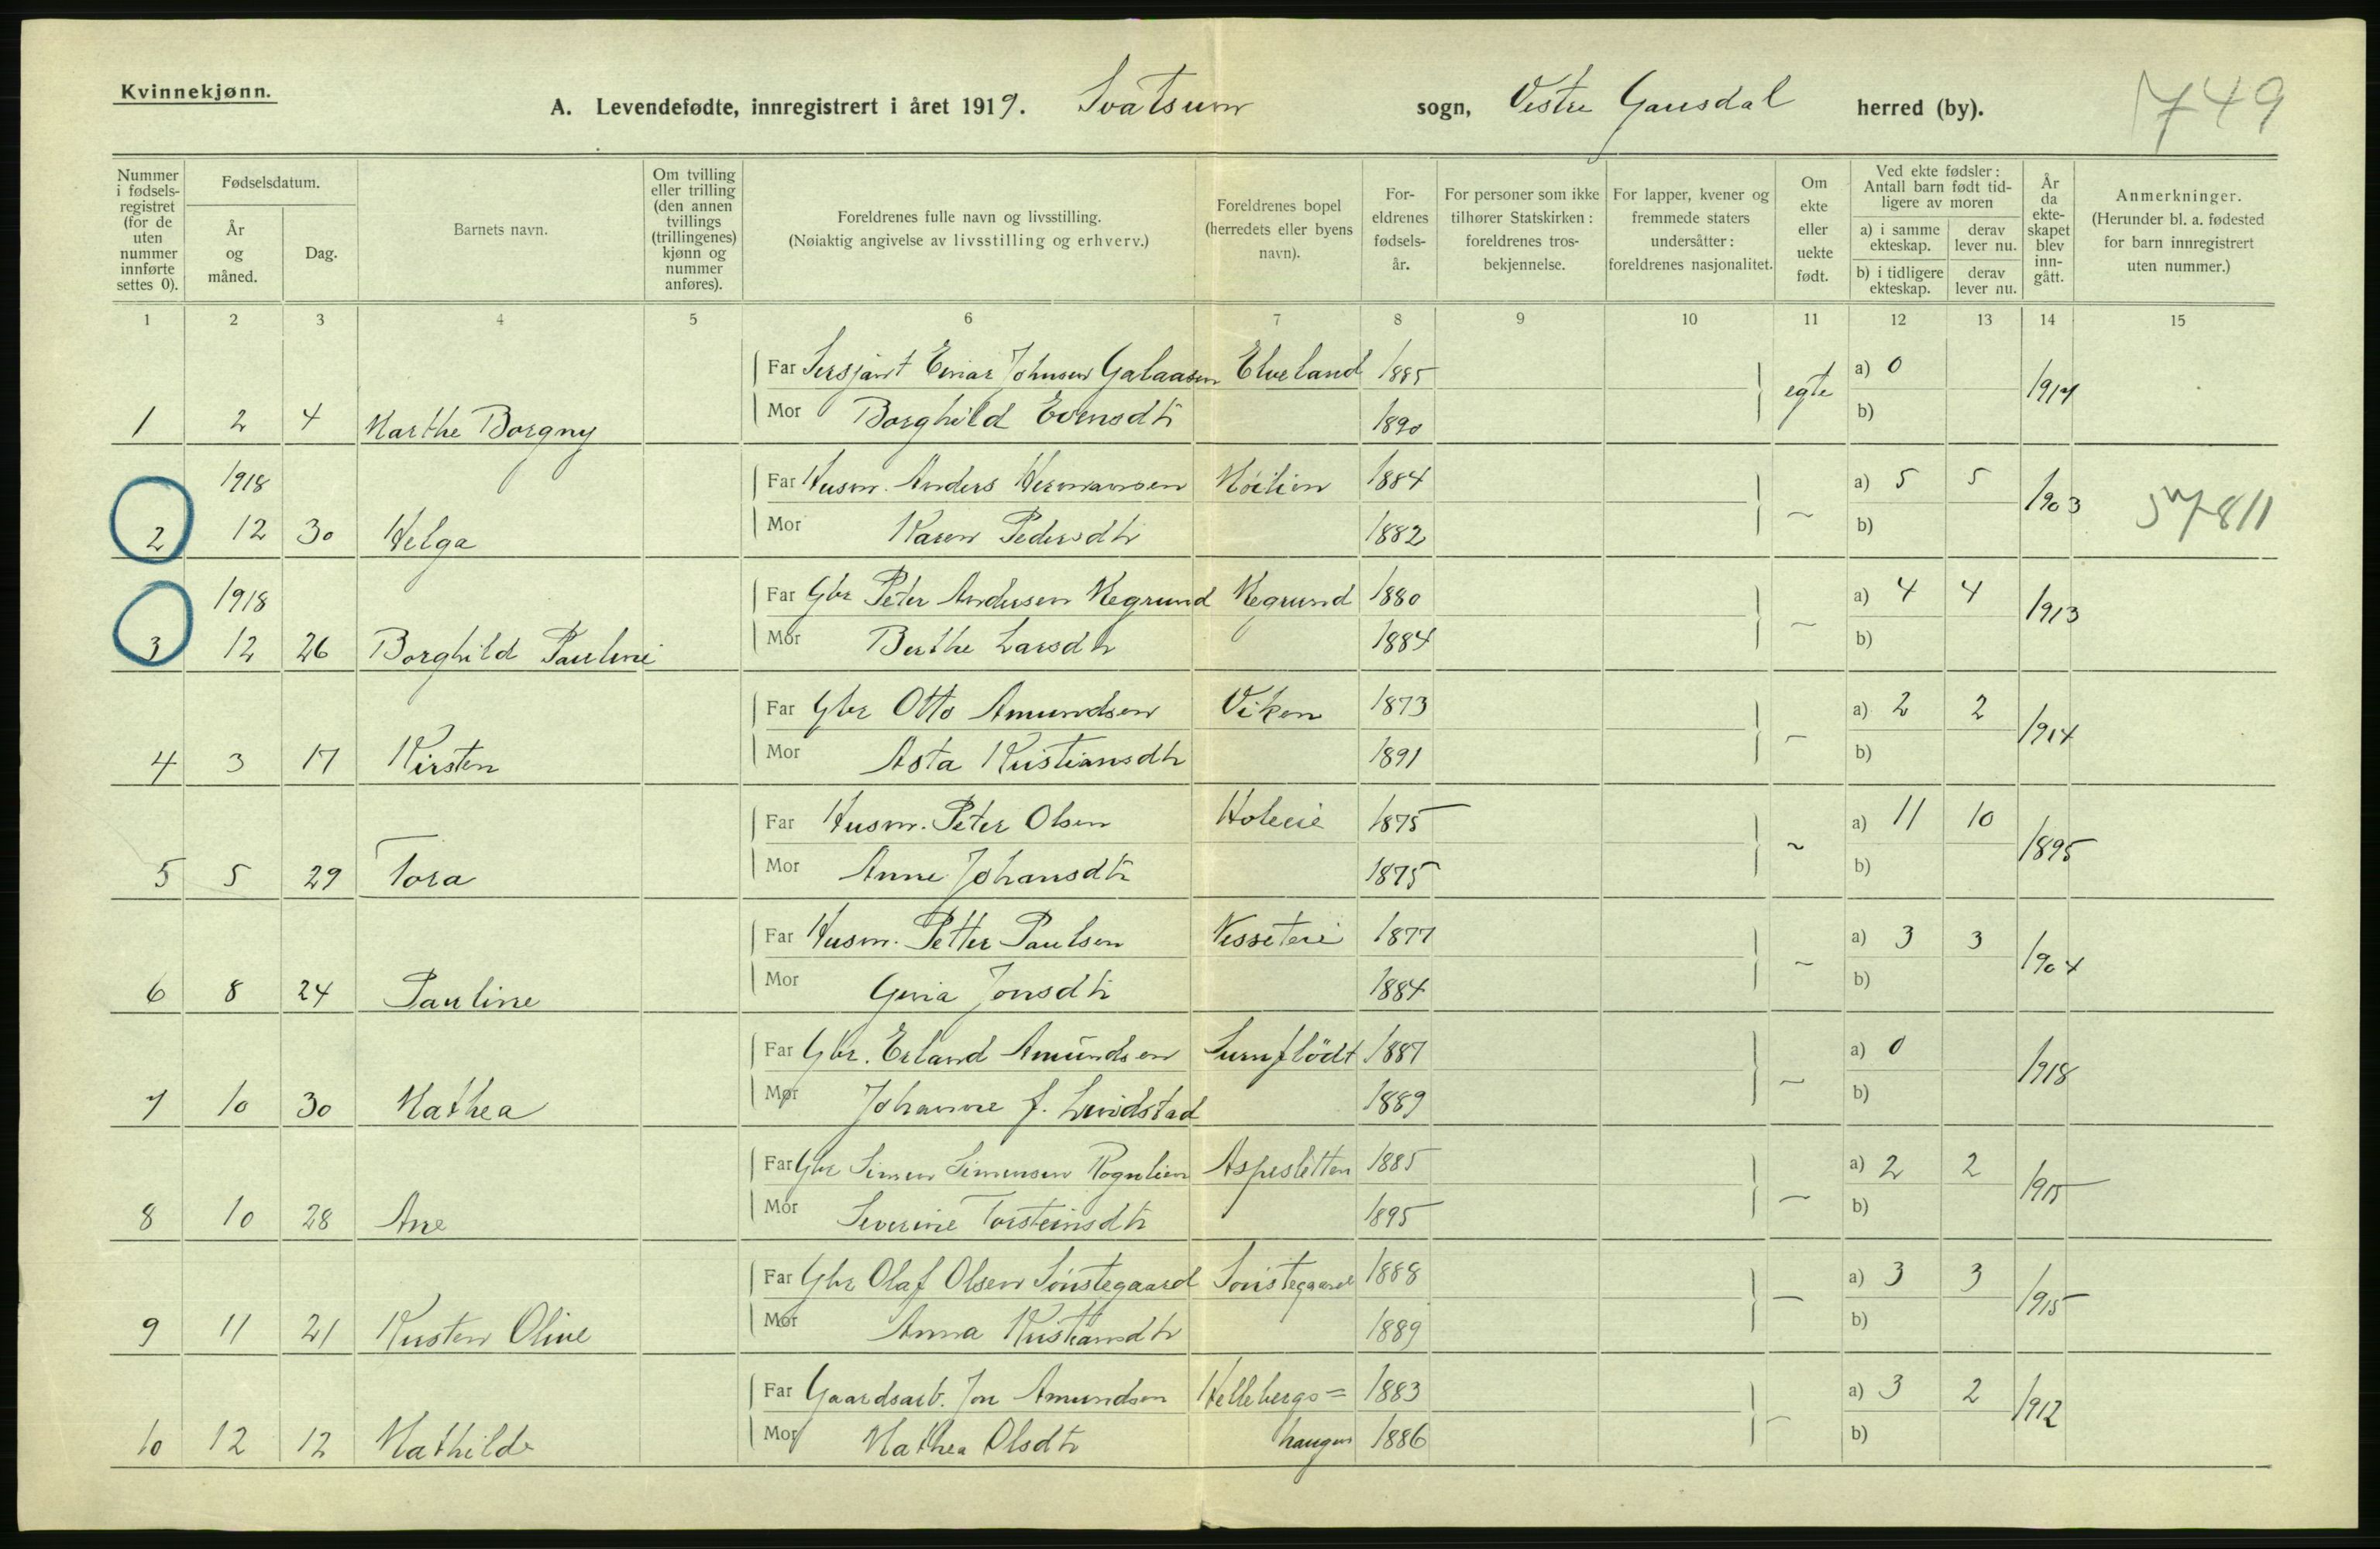 Kvinnekjønn.
A. Levendefødte, innregistrert i året 1919. Svatsum sogn, Vestre Gausdal herred (by). 749
Nummer i fødsels-registret (for de uten nummer innførte settes 0).
Fødselsdatum.
År og måned.
Dag.
Barnets navn.
Om tvilling eller trilling (den annen tvillings (trillingenes) kjønn og nummer anføres).
Foreldrenes fulle navn og livsstilling.
(Nøiaktig angivelse av livsstilling og erhverv.)
Foreldrenes bopel (herredets eller byens navn).
For-eldrenes fødsels-år.
For personer som ikke tilhører Statskirken: foreldrenes tros-bekjennelse.
For lapper, kvener og fremmede staters undersåtter: foreldrenes nasjonalitet.
Om ekte eller uekte født.
Ved ekte fødsler: Antall barn født tid-ligere av moren
a) i samme ekteskap.
derav lever nu.
b) i tidligere ekteskap.
derav lever nu.
År da ekte-skapet blev inn-gått.
Anmerkninger.
(Herunder bl. a. fødested for barn innregistrert uten nummer.)
1 2 3 4 5 6 7 8 9 10 11 12 13 14 15
Far Sersjant Einar Johnsen Galaasen Elveland 1885 egte a) 0 1917
1 2 4 Marthe Borgny Mor Borghild Evensdtr 1890 b)
1918 Far Husm. Anders Hermansen Moilien 1884 a) 5 5 1903
2 12 30 Helga Mor Karen Pedersdtr 1882 ~ b)
1918 Far Gbr Peter Andersen Megrund Megrund 1880 a) 4 4 1913
3 12 26 Borghild Pauline Mor Berthe Larsdtr 1884 ~ b)
Far Gbr Otto Amundsen Viken 1873 a) 2 2 1914
4 3 17 Kirsten Mor Asta Kristiansdtr 1891 ~ b)
Far Husm. Peter Olsen 1875 a) 11 10 1895
5 5 29 Tora Mor Anne Johansdtr 1875 ~ b)
Far Husm. Petter Paulsen 1877 a) 3 3 1904
6 8 24 Pauline Mor Gina Jonsdtr 1884 ~ b)
Far Gbr. Erland Amundsen Surnflödt 1887 a) 0 1918
7 10 30 Mathea Mor Johanne f. Lundstad 1889 ~ b)
Far Gbr Simen Simensen Rognlien Aspesletten 1885 a) 2 2 1915
8 10 28 Ane Mor Severine Torsteinsdtr 1895 ~ b)
Far Gbr Olaf Olsen Sönstegaard Sönstegaard 1888 a) 3 3 1915
9 11 21 Kirsten Oline Mor Anna Kristiansdtr 1889 ~ b)
Far Gaardsarb. Jon Amundsen Hellebergs= 1883 a) 3 2 1912
10 12 12 Mathilde Mor Mathea Olsdtr haugen 1886 ~ b)